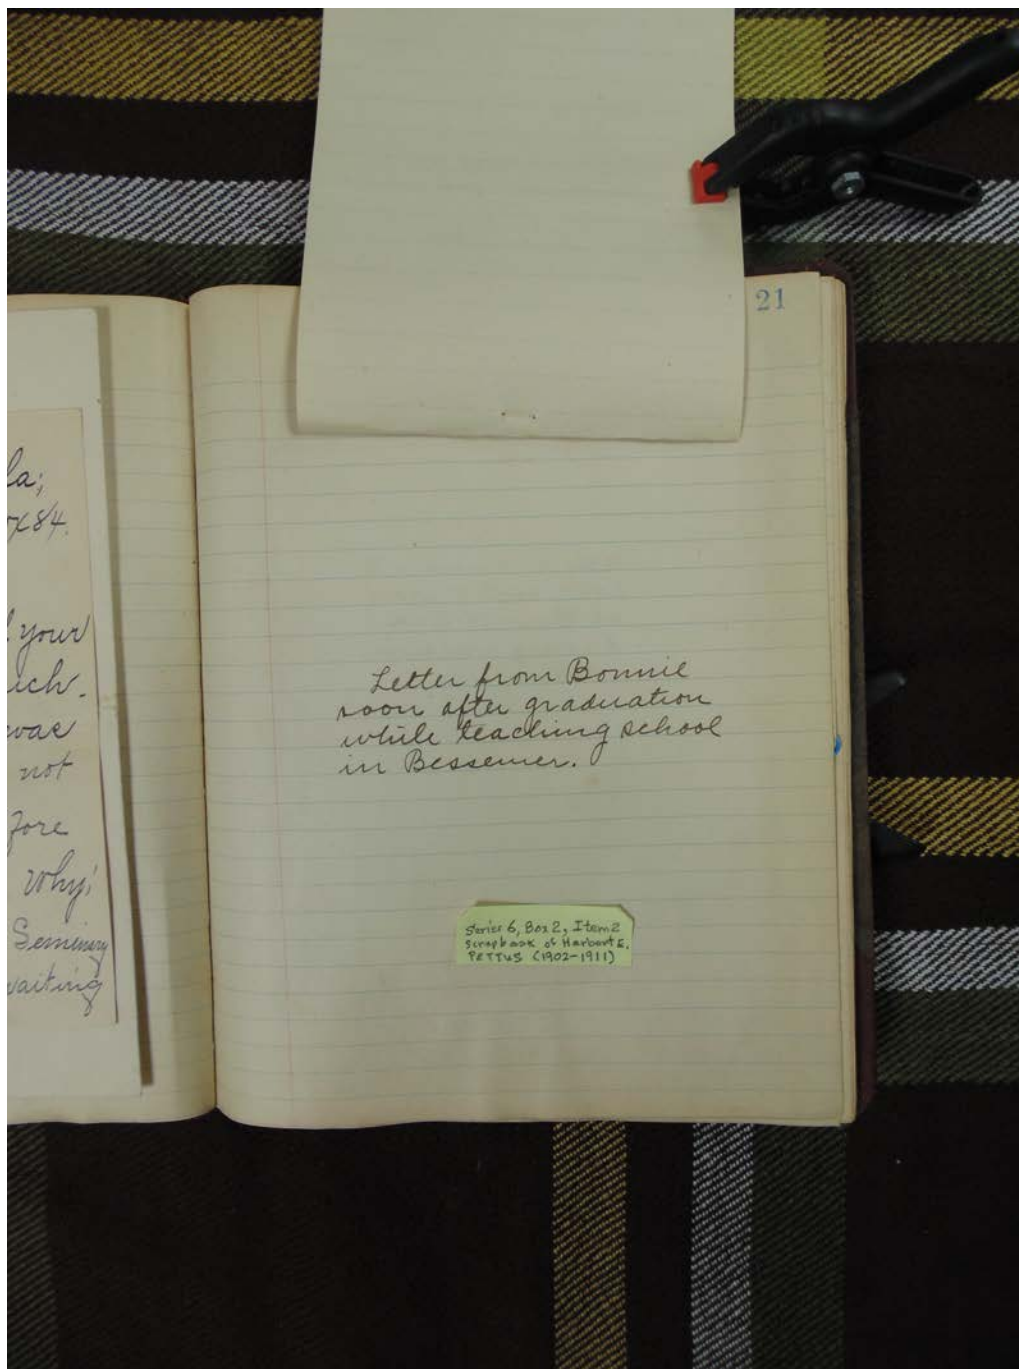 la;
x84.
your
uch.
was
not
fore
Why;
Seminary
waiting
21
Letter from Bonnie
soon after graduation
while teaching school
in Bessemer.
Series 6, Box 2, Item 2
Scrapbook of Harbert E.
PETTUS (1902-1911)